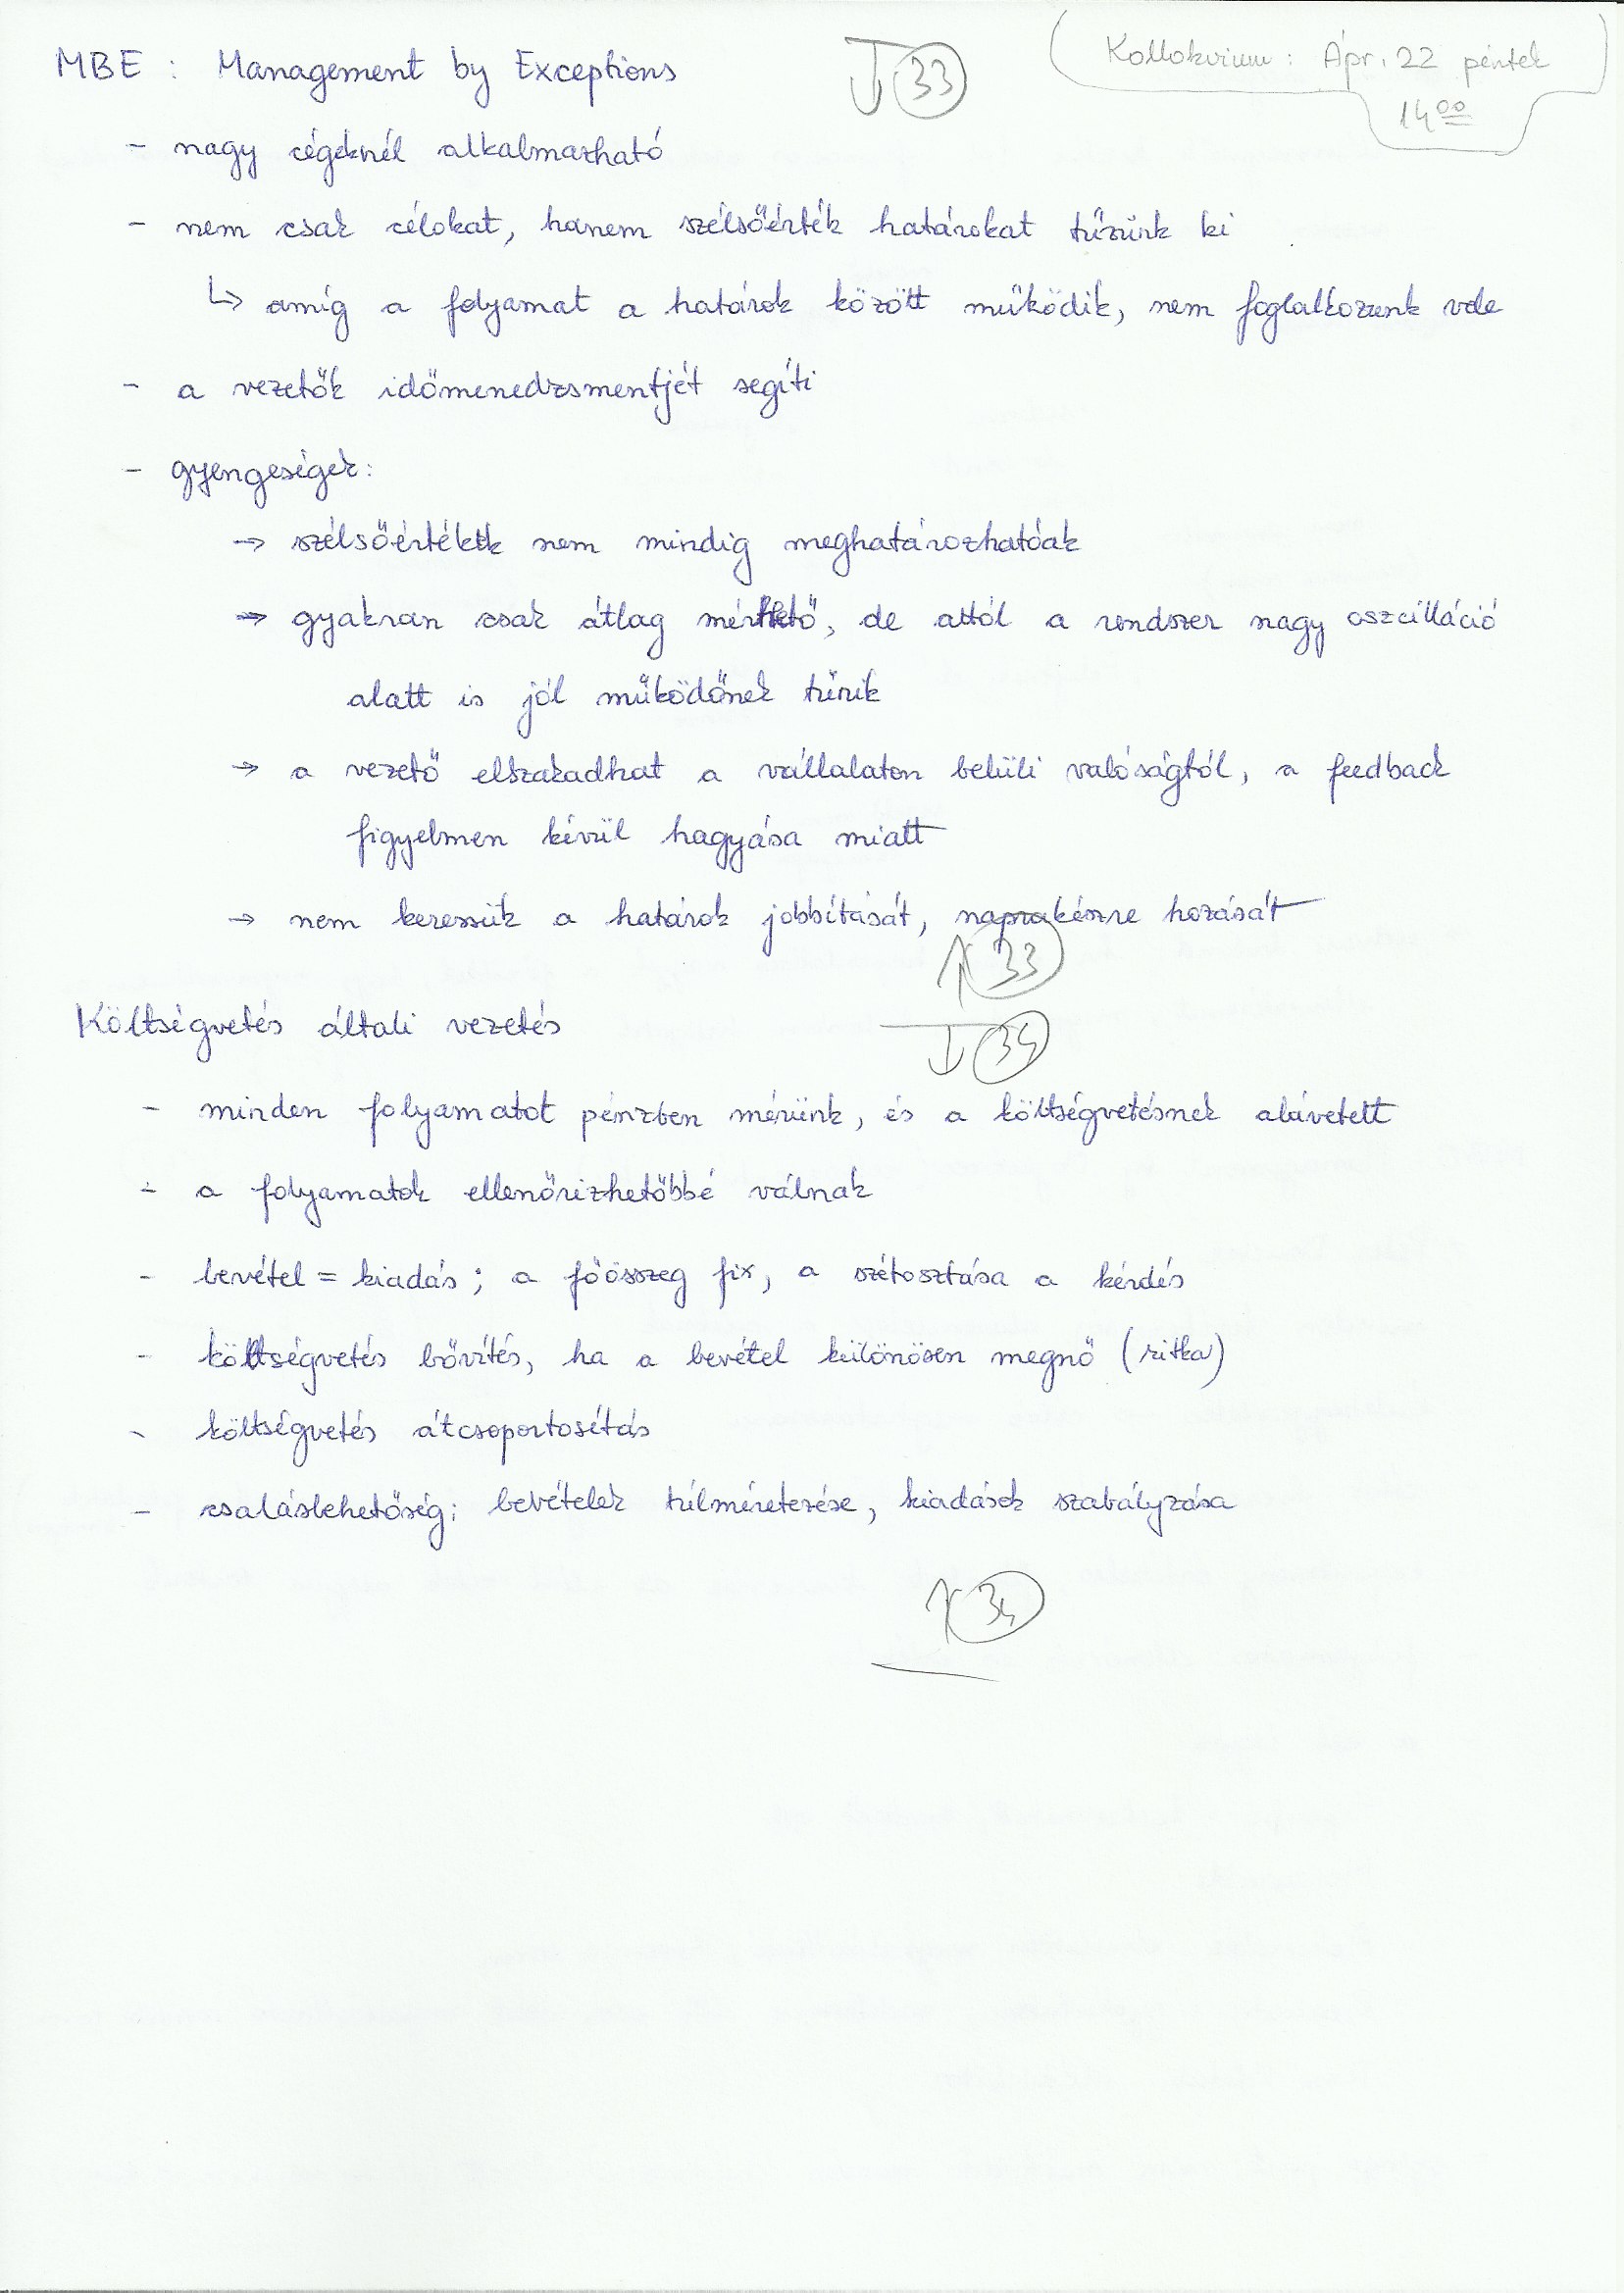 MBE : Management by Exceptions
33
Kollokvium : Ápr. 22 péntek
14 00
- nagy cégeknél alkalmazható
- nem csak célokat, hanem szélsőérték határokat tűzünk ki
↳ amíg a folyamat a határok között működik, nem foglalkozunk vele
- a vezetők időmenedzsmentjét segíti
- gyengeségek:
→ szélsőértékek nem mindig meghatározhatóak
→ gyakran csak átlag mérhető, de attól a rendszer nagy oszcilláció
alatt is jól működőnek tűnik
→ a vezető elszakadhat a vállalaton belüli valóságtól, a feedback
figyelmen kívül hagyása miatt
→ nem keressük a határok jobbítását, naprakészre hozását
33
Költségvetés általi vezetés
34
- minden folyamatot pénzben mérünk, és a költségvetésnek alávetett
- a folyamatok ellenőrizhetőbbé válnak
- bevétel = kiadás ; a főösszeg fix, a szétosztása a kérdés
- költségvetés bővítés, ha a bevétel különösen megnő (ritka)
- költségvetés átcsoportosítás
- csaláslehetőség: bevételek túlméretezése, kiadások szabályzása
34